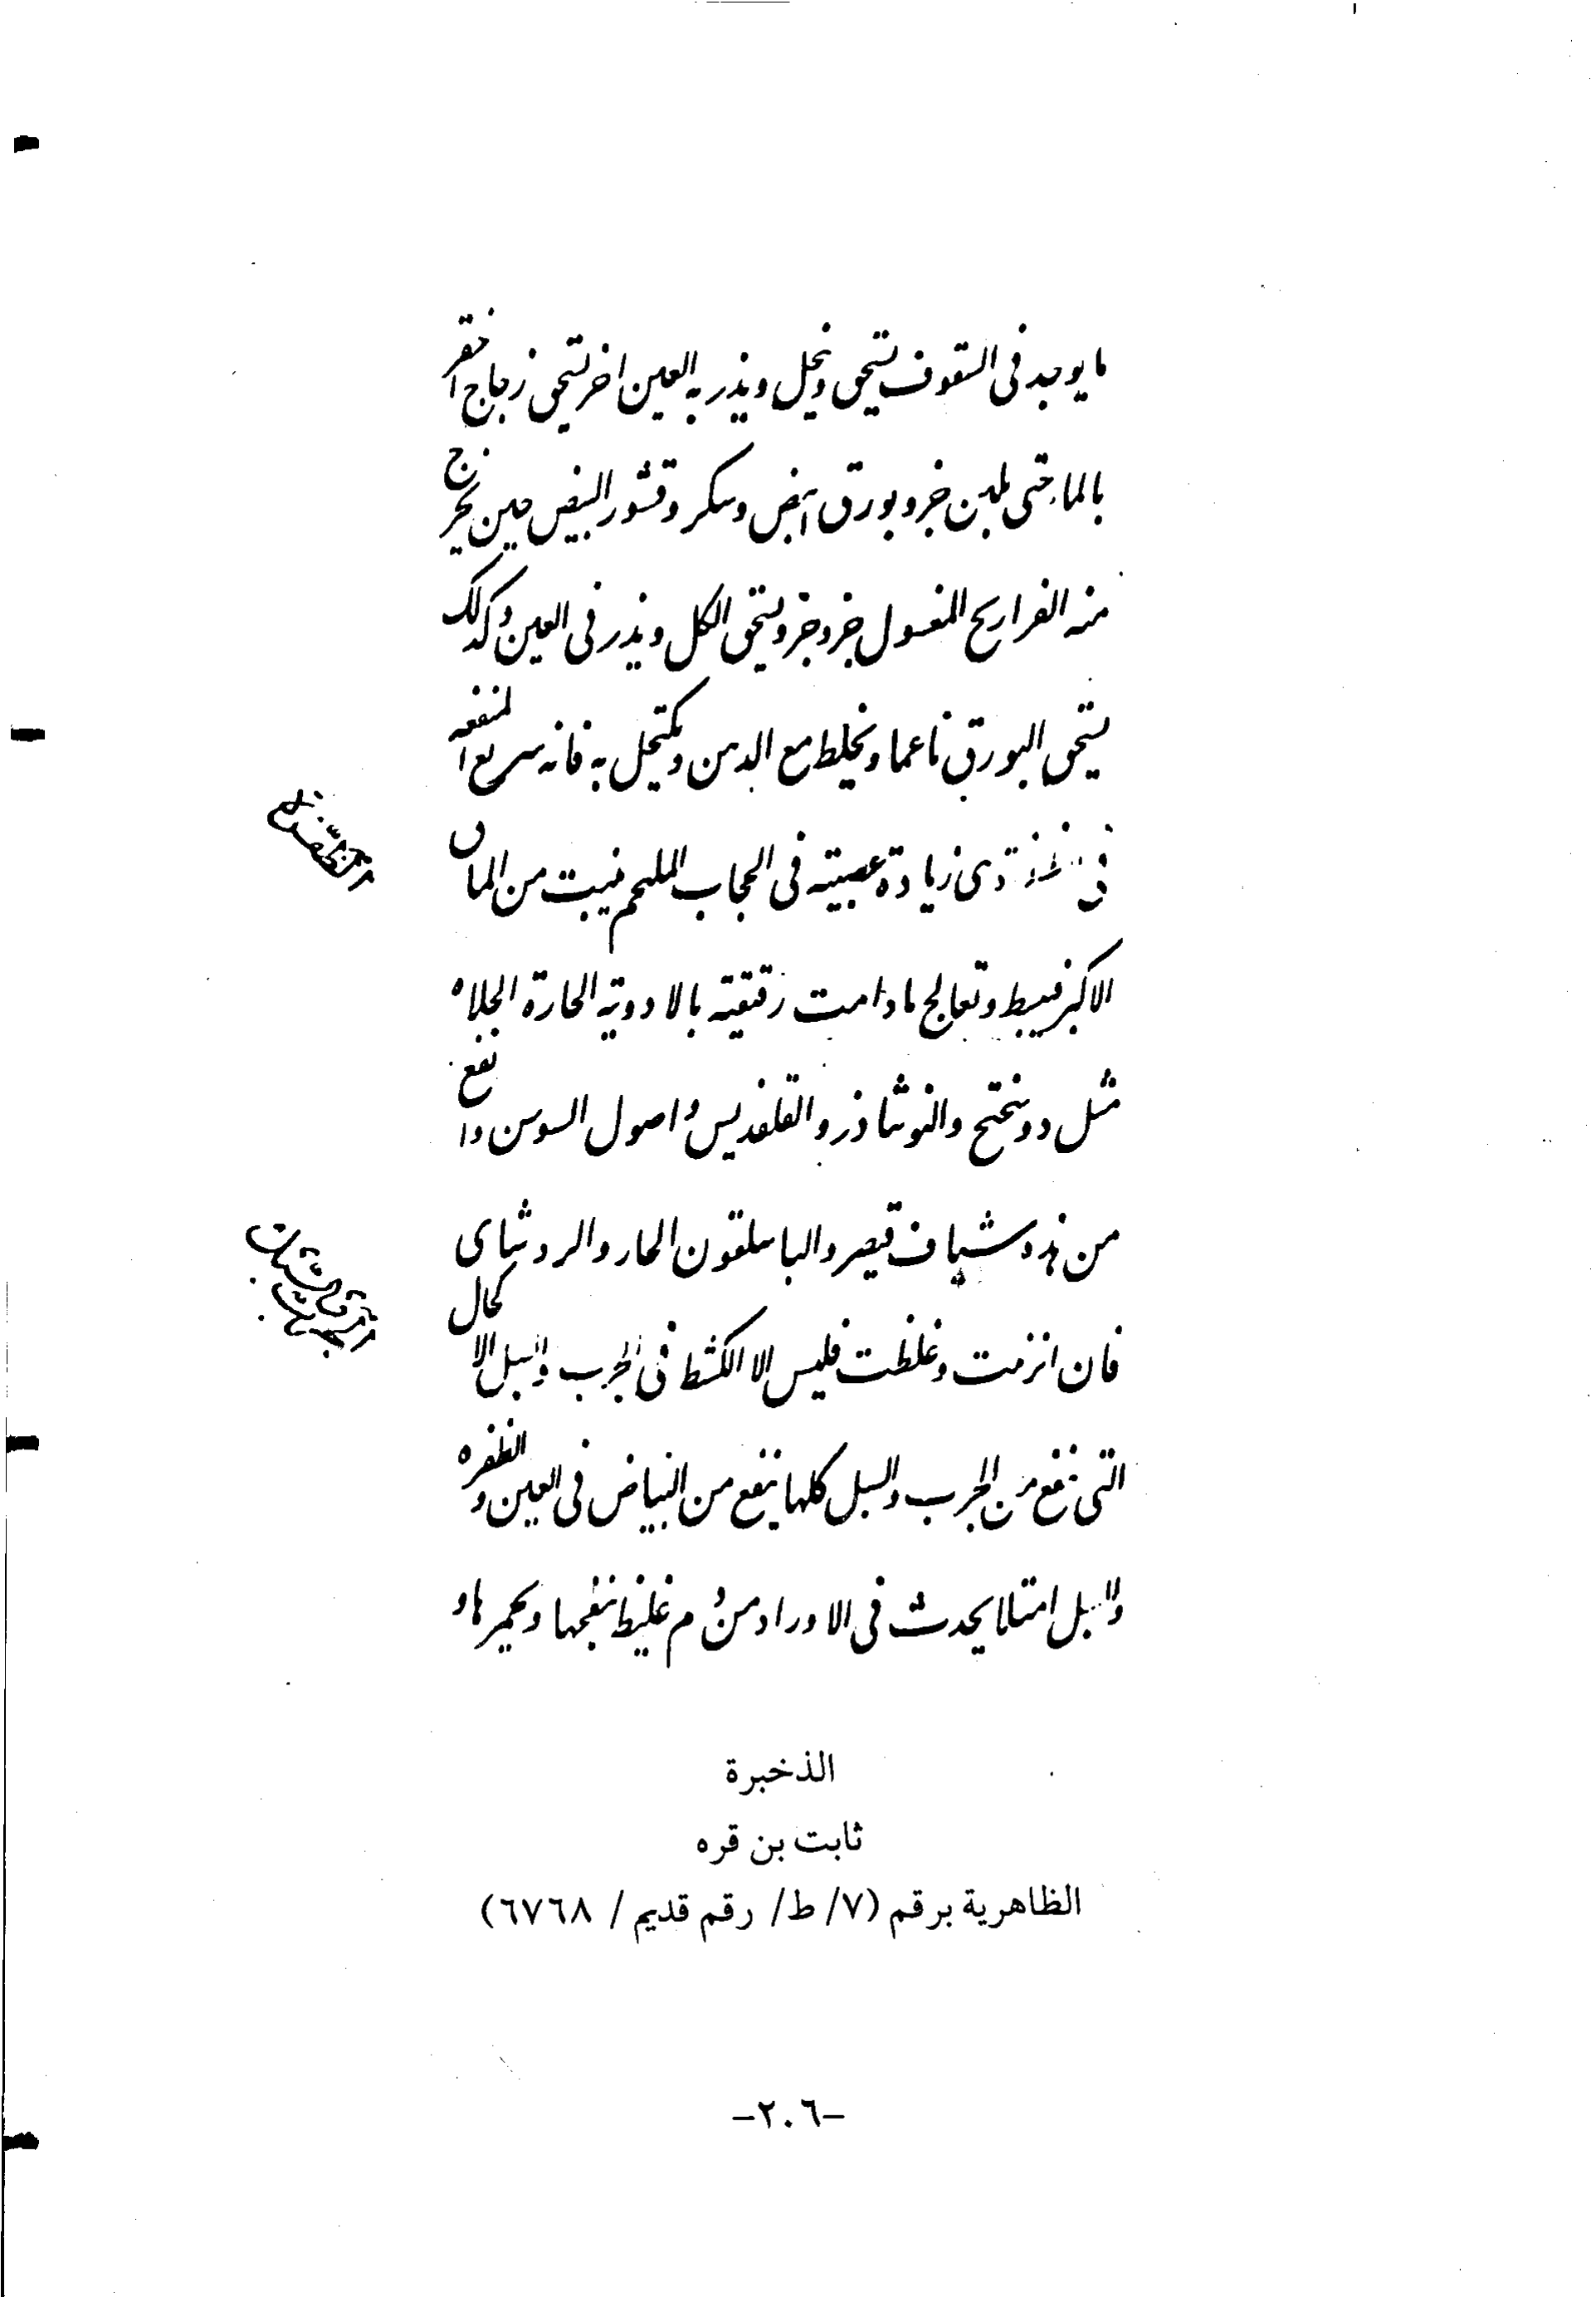 ما يوجد فى السقوف يسحق وينخل ويذر به العين اخر يسحق زجاج اخضر
بالما حتى يلين جزو بورق ابيض وسكر وقشور البيض حين يخرج
منه الفراريج المغسول جزو جزو يسحق الكل ويذر فى العين وكذلك
يسحق البورق ناعما ويخلط مع الدهن ويكتحل به فانه سريع المنفعه
فى زيادة عصبية فى الحجاب الملتحم ينبت من الماق
الاكبر فيبسط وتعالج مادامت رقيقة بالادوية الحارة الجلاه
مثل روسختج والنوشاذر والقلقديس واصول السوسن وانفع
من هذه شياف قيصر والباسلقون الحار والروشناى
فان ازمنت وغلظت فليس الا الكشط فى الجرب والسبل الاكحال
التى تنفع من الجرب والسبل كلها ينفع من البياض فى العين والظفره
والسبل امتلا يحدث فى الاوراد من دم غليظ ينفخها ويحمرها و
الذخيرة
ثابت بن قره
الظاهرية برقم (٧/ ط/ رقم قديم / ٦٧٦٨)
-٢٠٦-